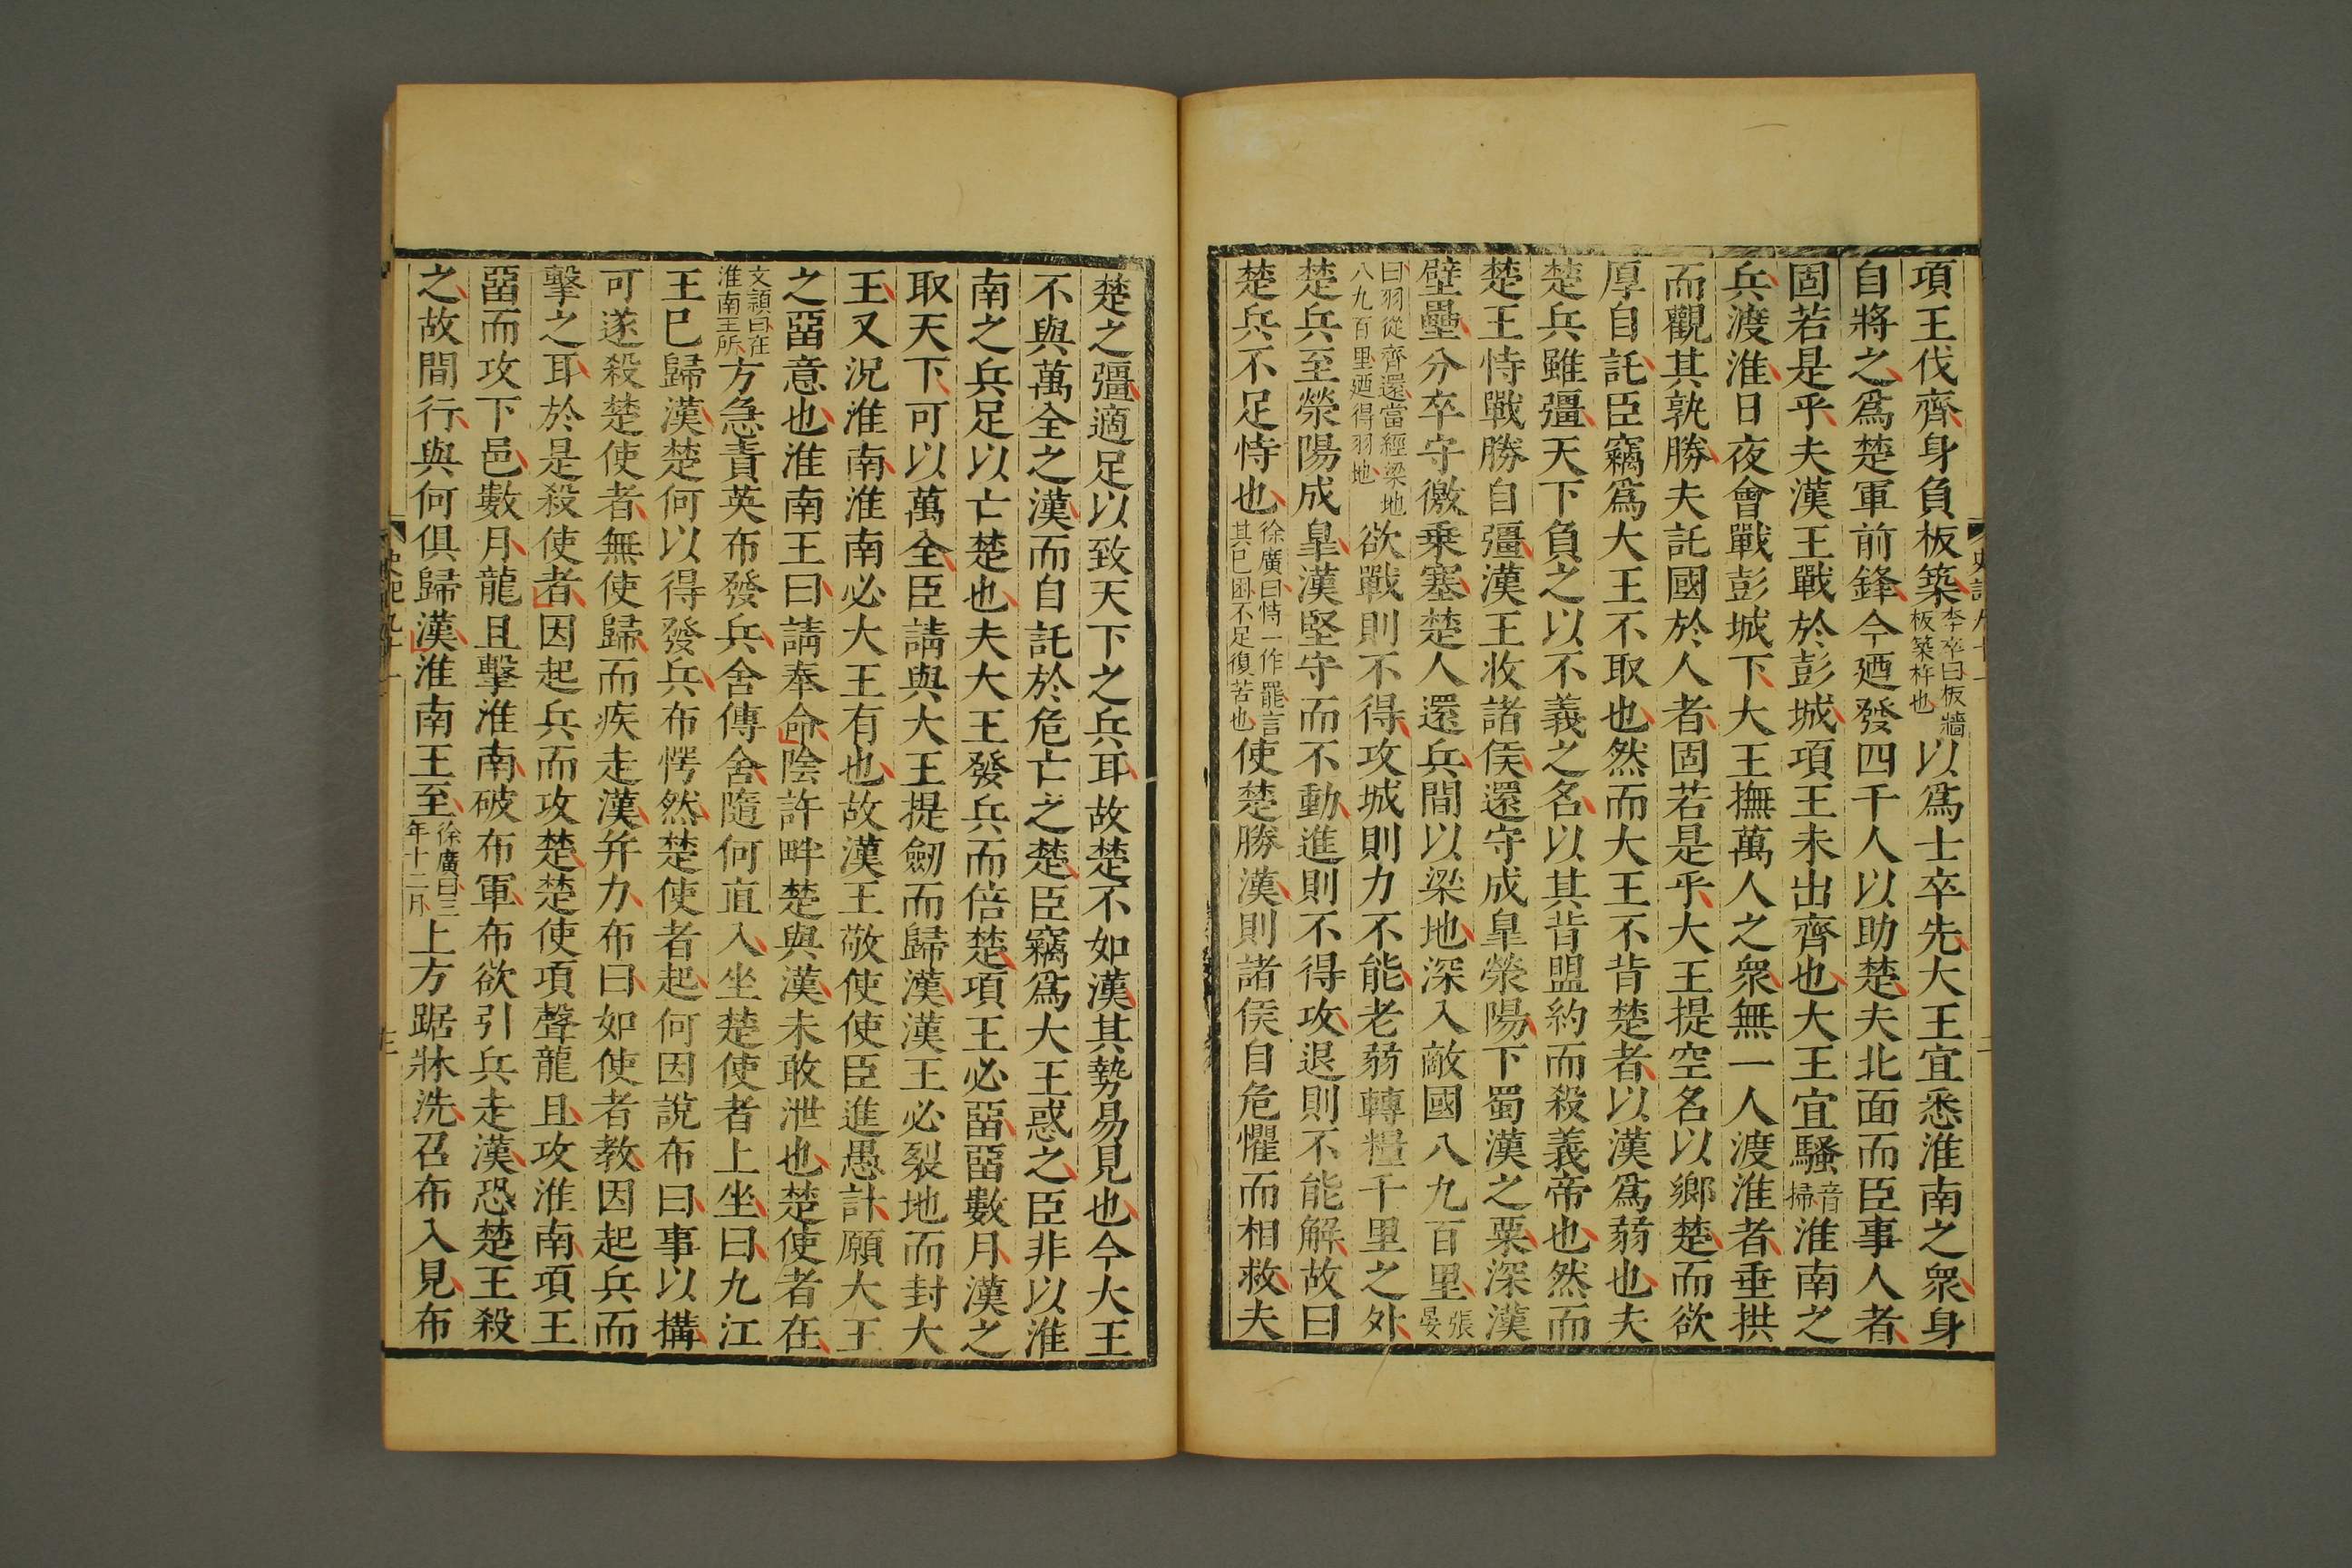 項王伐齊身負板築李奇曰板牆板築杵也以爲士卒先大王宜悉淮南之衆身
自將之爲楚軍前鋒今廼發四千人以助楚夫北面而臣事人者
固若是乎夫漢王戰於彭城項王未出齊也大王宜騷音掃淮南之
兵渡淮日夜會戰彭城下大王撫萬人之衆無一人渡淮者垂拱
而觀其孰勝夫託國於人者固若是乎大王提空名以鄉楚而欲
厚自託臣竊爲大王不取也然而大王不肯楚者以漢爲弱也夫
楚兵雖彊天下負之以不義之名以其背盟約而殺義帝也然而
楚王恃戰勝自彊漢王收諸侯還守成皐滎陽下蜀漢之粟深漢
壁壘分卒守徼乗塞楚人還兵間以梁地深入敵國八九百里張晏
曰羽從齊還當經梁地八九百里廼得羽地欲戰則不得攻城則力不能老弱轉糧千里之外
楚兵至滎陽成皐漢堅守而不動進則不得攻退則不能解故曰
楚兵不足恃也徐廣曰恃一作罷言其已困不足復苦也使楚勝漢則諸侯自危懼而相救夫
楚之彊適足以致天下之兵耳故楚不如漢其勢易見也今大王
不與萬全之漢而自託於危亡之楚臣竊爲大王惑之臣非以淮
南之兵足以亡楚也夫大王發兵而倍楚項王必畱畱數月漢之
取天下可以萬全臣請與大王提劒而歸漢漢王必裂地而封大
王又況淮南淮南必大王有也故漢王敬使使臣進愚計願大王
之畱意也淮南王曰請奉命陰許畔楚與漢未敢泄也楚使者在
文穎曰在淮南王所方急責英布發兵舍傳舍隨何直入坐楚使者上坐曰九江
王已歸漢楚何以得發兵布愕然楚使者起何因說布曰事以搆
可遂殺楚使者無使歸而疾走漢幷力布曰如使者教因起兵而
擊之耳於是殺使者因起兵而攻楚楚使項聲龍且攻淮南項王
畱而攻下邑數月龍且擊淮南破布軍布欲引兵走漢恐楚王殺
之故間行與何俱歸漢淮南王至徐廣曰三年十二月上方踞牀洗召布入見布